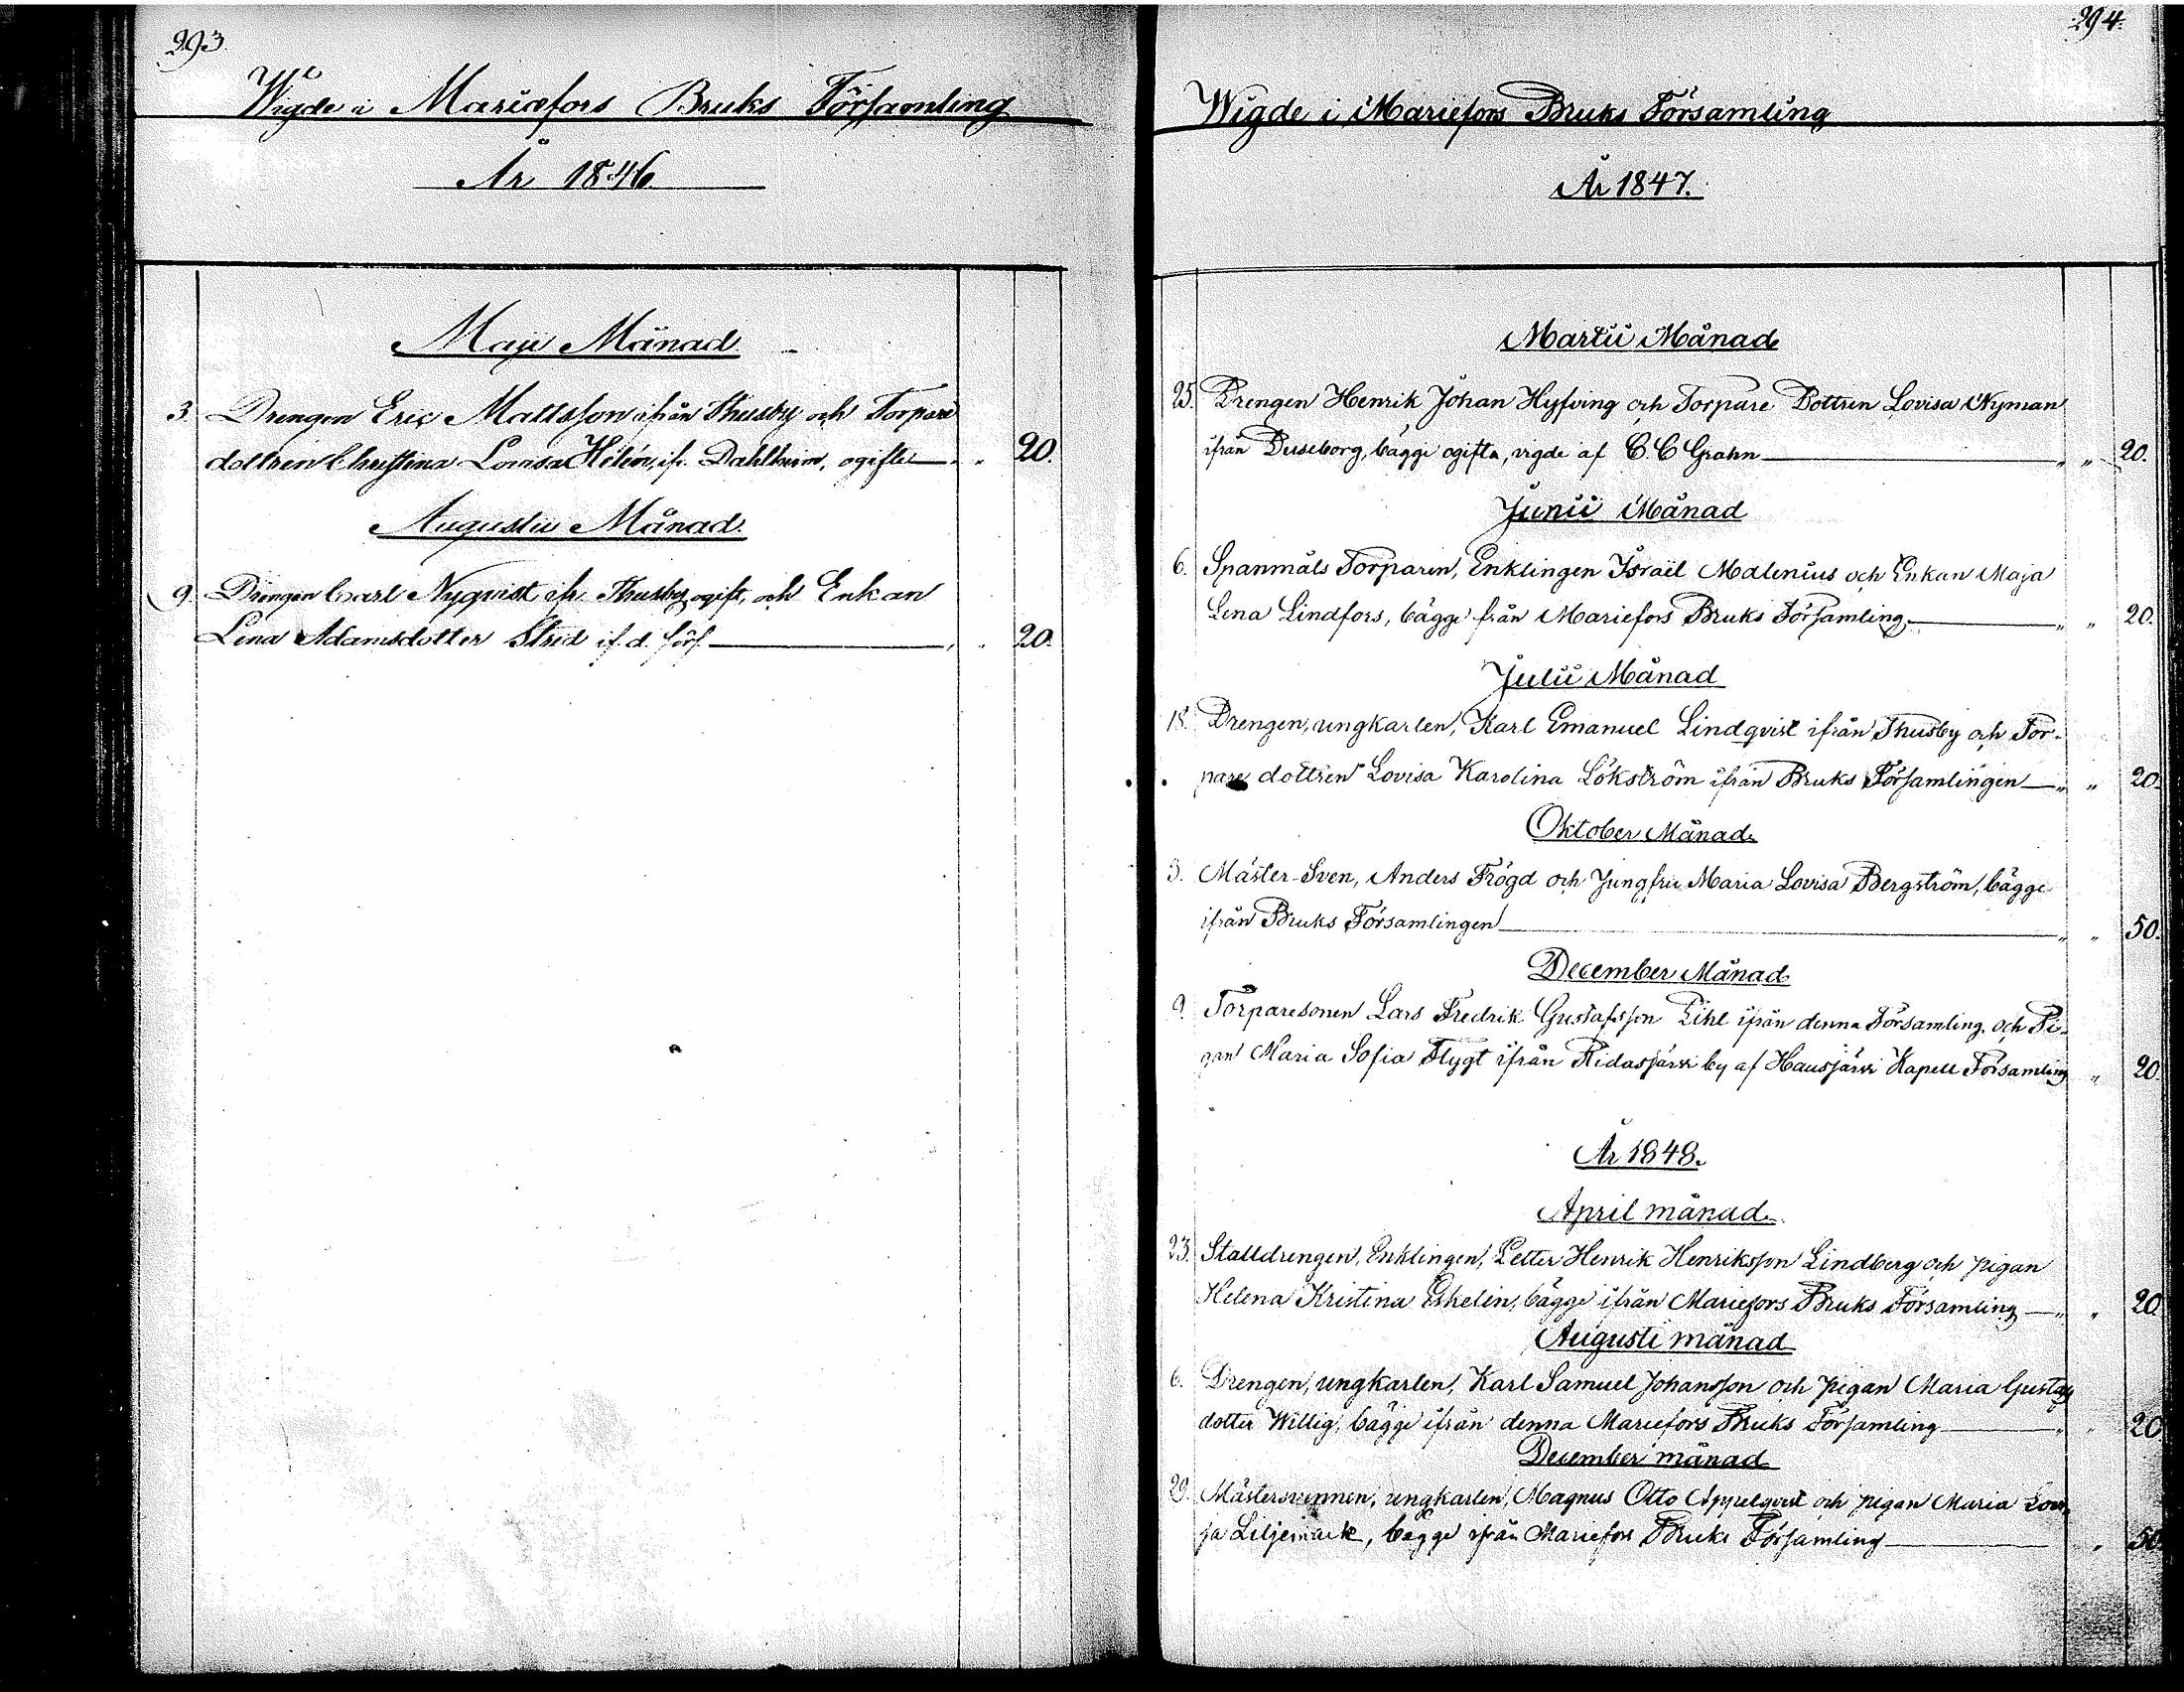 293.
Wigde i Mariefors Bruks Församling
År 1846
Maji Månad
3. Drengen Eric Mattsson ifrån Thusby och Torpare
dottren Christina Lovisa Hilén, ifr. Dahlheim, ogifte — " 20.
Augusti Månad.
9. Drengen Carl Nyqvist ifr. Thusby, ogift, och Enkan
Lena Adamsdotter Strid if. d. förs. — " " 20.
294.
Wigde i Mariefors Bruks Församling
År 1847.
Martii Månad
25. Drengen Henrik Johan Hyfving och Torpare Dottren Lovisa Nyman
ifrån Duseborg, bägge ogifta, vigde af C. C Grahn — " " 20.
Junii Månad
6. Spanmåls Torparen, Enklingen Israël Malenius och Enkan Maja
Lena Lindfors, bägge från Mariefors Bruks Församling. — " " 20.
Julii Månad
18. Drengen, ungkarlen, Karl Emanuel Lindqvist ifrån Thusby och Tor-
pare dottren Lovisa Karolina Lökström ifrån Bruks Församlingen — " " 20.
Oktober Månad.
3. Mäster-Sven, Anders Frögd och Jungfru Maria Lovisa Bergström, bägge
ifrån Bruks Församlingen — " " 50.
December Månad
9. Torparesonen Lars Fredrik Gustafsson Pihl ifrån denna Församling, och Pi-
gan Maria Sofia Flygt ifrån Ridasjärvi by af Hausjärvi Kapell Församling " 20.
År 1848.
April månad.
23. Stalldrengen, Enklingen, Petter Henrik Henriksson Lindberg och pigan
Helena Kristina Eskelin, bägge ifrån Mariefors Bruks Församling — " " 20
Augusti månad
6. Drengen, ungkarlen, Karl Samuel Johansson och pigan Maria Gustafs
dotter Willig, bägge ifrån denna Mariefors Bruks Församling — " " 20
December månad
29. Mästersvennen, ungkarlen, Magnus Otto Appelqvist och pigan Maria Lovi-
sa Liljemark, bägge ifrån Mariefors Bruks Församling — " 50.